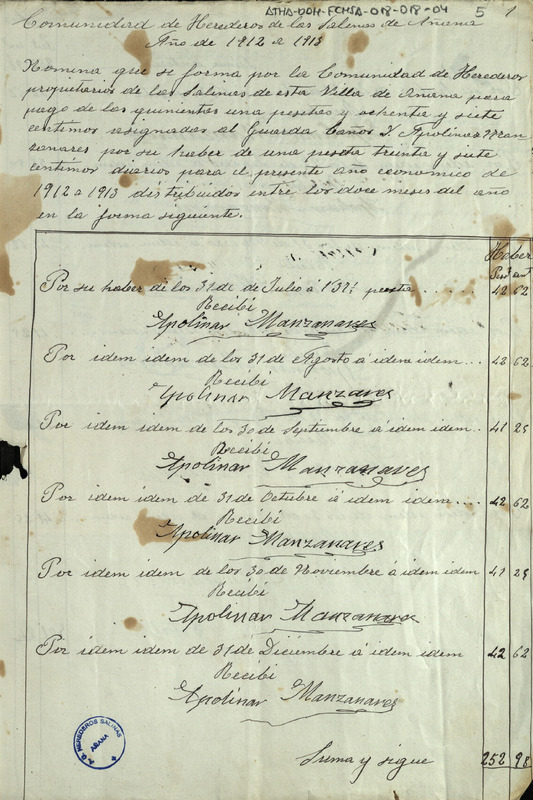 ATHA-DAH-FCHSA-018-018-04
5 1
Comunidad de Herederos de las Salinas de Añana
Año de 1912 a 1913
Nomina que se forma por la Comunidad de Herederos
propietarios de las Salinas de esta Villa de Añana para
pago de las quinientas una pesetas y ochenta y siete
centimos asignadas al Guarda Caños D. Apolinar Man
zanares por su haber de una peseta treinta y siete
centimos diarios para el presente año economico de
1912 a 1913 distribuidos entre los doce meses del año
en la forma siguiente.
Haber
Por su haber de los 31 de Julio á 1'37½ peseta .... 42 62
Recibí
Apolinar Manzanares
Por idem idem de los 31 de Agosto á idem idem ... 42 62
Recibí
Apolinar Manzares
Por idem idem de los 30 de Septiembre á idem idem.. 41 25
Recibí
Apolinar Manzanares
Por idem idem de 31 de Octubre á idem idem .... 42 62
Recibí
Apolinar Manzanares
Por idem idem de los 30 de Noviembre á idem idem 41 25
Recibí
Apolinar Manzanares
Por idem idem de 31 de Diciembre á idem idem 42 62
Recibí
Apolinar Manzanares
HEREDEROS SALINAS
AÑANA
Suma y sigue 252 98